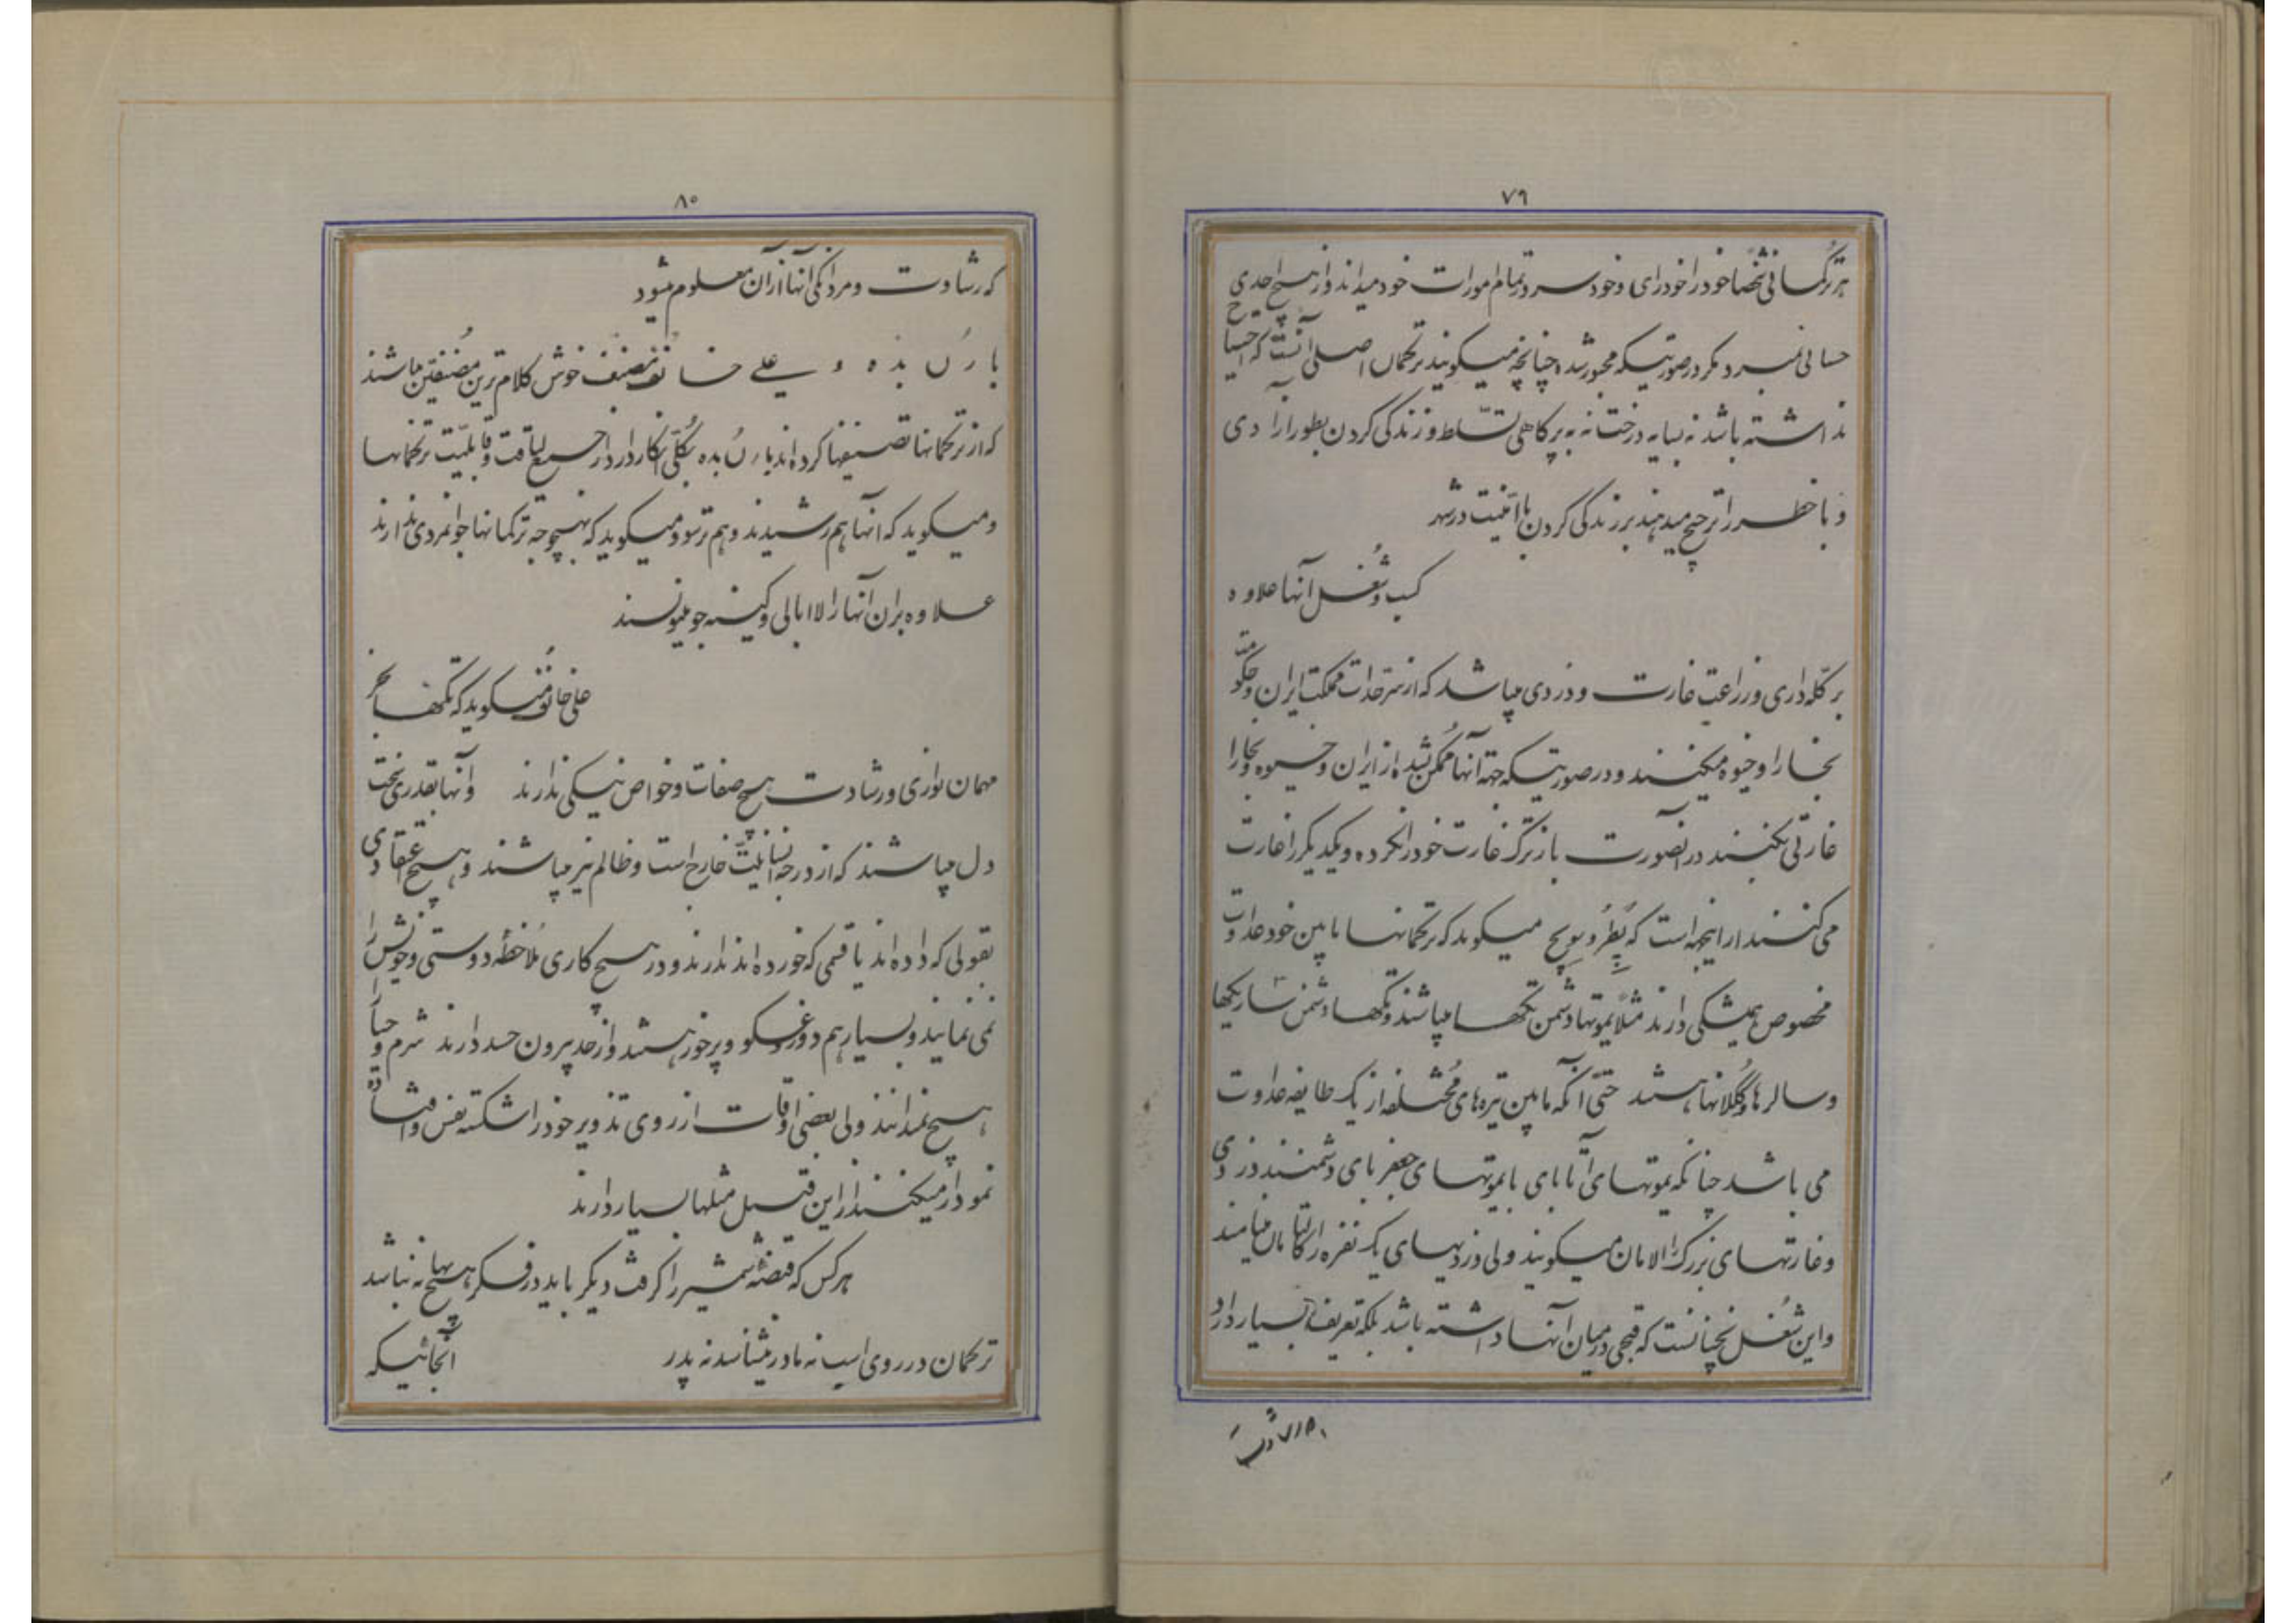 ۷۹
هر ترکمانی شخصا خود را خودرای و خودسر در تمام امورات خود میداند و از هیچ احدی
حسابی نمیبرد مگر در صورتیکه مجبور شده چنانچه میگویند ترکمان اصلی آنست که احتیاج
نداشته باشد نه بسایه درخت نه به پر کاهلی تسلط و زندگی کردن بطور آزادی
و با خطر را ترجیح میدهند بر زندگی کردن با امنیت در شهر
کسب و شغل آنها علاوه
بر گله داری و زراعت غارت و دزدی میباشد که از سرحدات مملکت ایران و حکومت
بخارا و خیوه میکنند و در صورتیکه جهته آنها ممکن نشده از ایران و خیوه و بخارا
غارتی بکنند در آنصورت باز ترک غارت خود را نکرده و یکدیگر را غارت
می کنند از اینجهه است که پطروسویچ میگوید که ترکمانها مابین خود عداوت
مخصوص همیشگی دارند مثلا یموتها دشمن تکه‌ها میباشند و تکه‌ها دشمن ساریکها
و سالرها و گکلانها هستند حتی آنکه مابین تیره‌های مختلفه از یک طایفه عداوت
می باشد چنانکه یموتهای آتابای با یموتهای جعفربای دشمنند دزدی
و غارتهای بزرگ را الامان میگویند ولی دزدیهای یک نفره را کالتامان مینامند
و این شغل نچنانست که قبحی در میان آنها داشته باشد بلکه تعریف بسیار دارد
۸۰
که رشادت و مردانگی آنها از آن معلوم میشود
بارُن بده و علی خانف مصنف خوش کلام ترین مصنفین میباشند
که از ترکمانها تصنیفها کرده‌اند بارُن بده بکلی انکار دارد از جمیع لیاقت و قابلیت ترکمانها
و میگوید که آنها هم رشیدند و هم ترسو و میگوید که بهیچوجه ترکمانها جوانمردی ندارند
علاوه بران آنها را لاابالی و کینه جو مینویسند
علی خانُف میگوید که تکه‌ها بجز
مهمان نوازی و رشادت هیچ صفات و خواص نیکی ندارند و آنها بقدری سخت
دل میباشند که از درجه انسانیت خارج است و ظالم نیز میباشند و هیچ اعتقادی
بقولی که داده‌اند یا قسمی که خورده‌اند ندارند و در هیچ کاری ملاحظه دوستی و خویشی را
نمی نمایند و بسیار هم دروغگو و پرخور هستند و از حد بیرون حسد دارند شرم و حیا
هیچ نمیدانند ولی بعضی اوقات از روی تذویر خود را شکسته نفس و افتاده
نمودار میکنند از این قبیل مثلها بسیار دارند
هر کس که قبضه شمشیر را گرفت دیگر باید در فکر هیچ بهانه نباشد
ترکمان در روی اسب نه مادر میشناسد نه پدر آنجائیکه